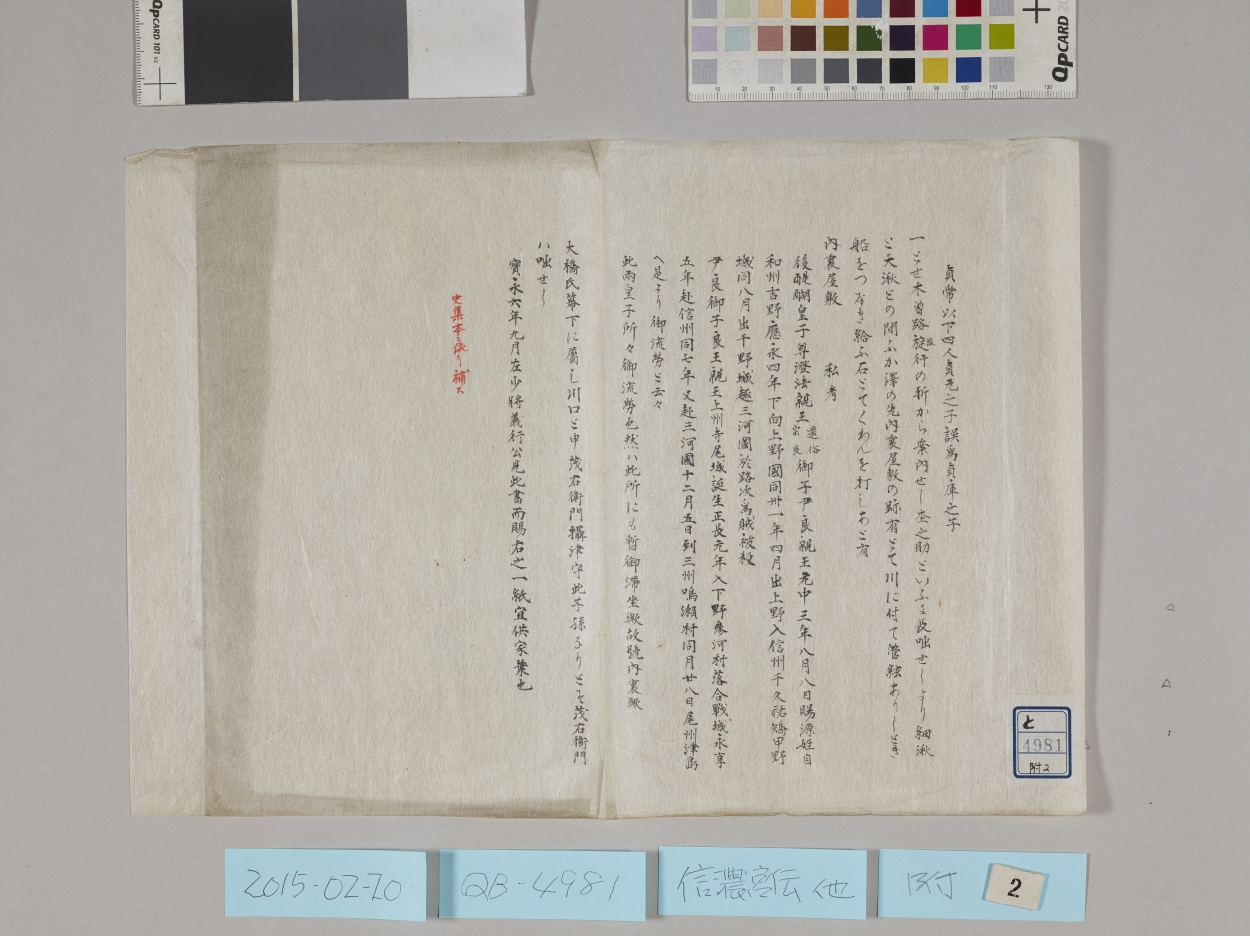 QPCARD 101 v3
QPCARD 20
10 20 30 40 50 60 70 80 90 100 110 130
貞常以下四人貞元之子誤為貞庫之子
一とせ木曽路旅行の折から案内せし杢之助といふ者咄せしより細湫
と大湫との間ふか澤の先内裏屋敷の跡有とて川に付て管絃ありしとき
船をつなき給ふ石とてくわんを打しあと有
内裏屋敷 私考
後醍醐皇子尊澄法親王還俗宗良御子尹良親王元中三年八月八日賜源姓自
和州吉野應永四年下向上野國同卅一年四月出上野入信州千久祐矯甲野
城同八月出千野城趣三河國於路次為賊被殺
尹良御子良王親王上州寺尾城誕生正長元年入下野參河村落合戰城永享
五年赴信州同七年又赴三河國十二月五日到三州鳴瀬村同月廿八日尾州津島
へ是より御流勞と云々
此兩皇子所々御流勞也然ハ此所にも暫御滞坐歟故號内裏歟
大橋氏幕下に屬し川口と申茂右衛門攝津守此子孫なりとそ茂右衛門
ハ咄せし
寶永六年九月左少將義行公見此書而賜右之一紙宜供家業也
史集本ニ依リ補ス
と
4981
附2
2015-02-20
QB-4981
信濃宮伝 他
附
2